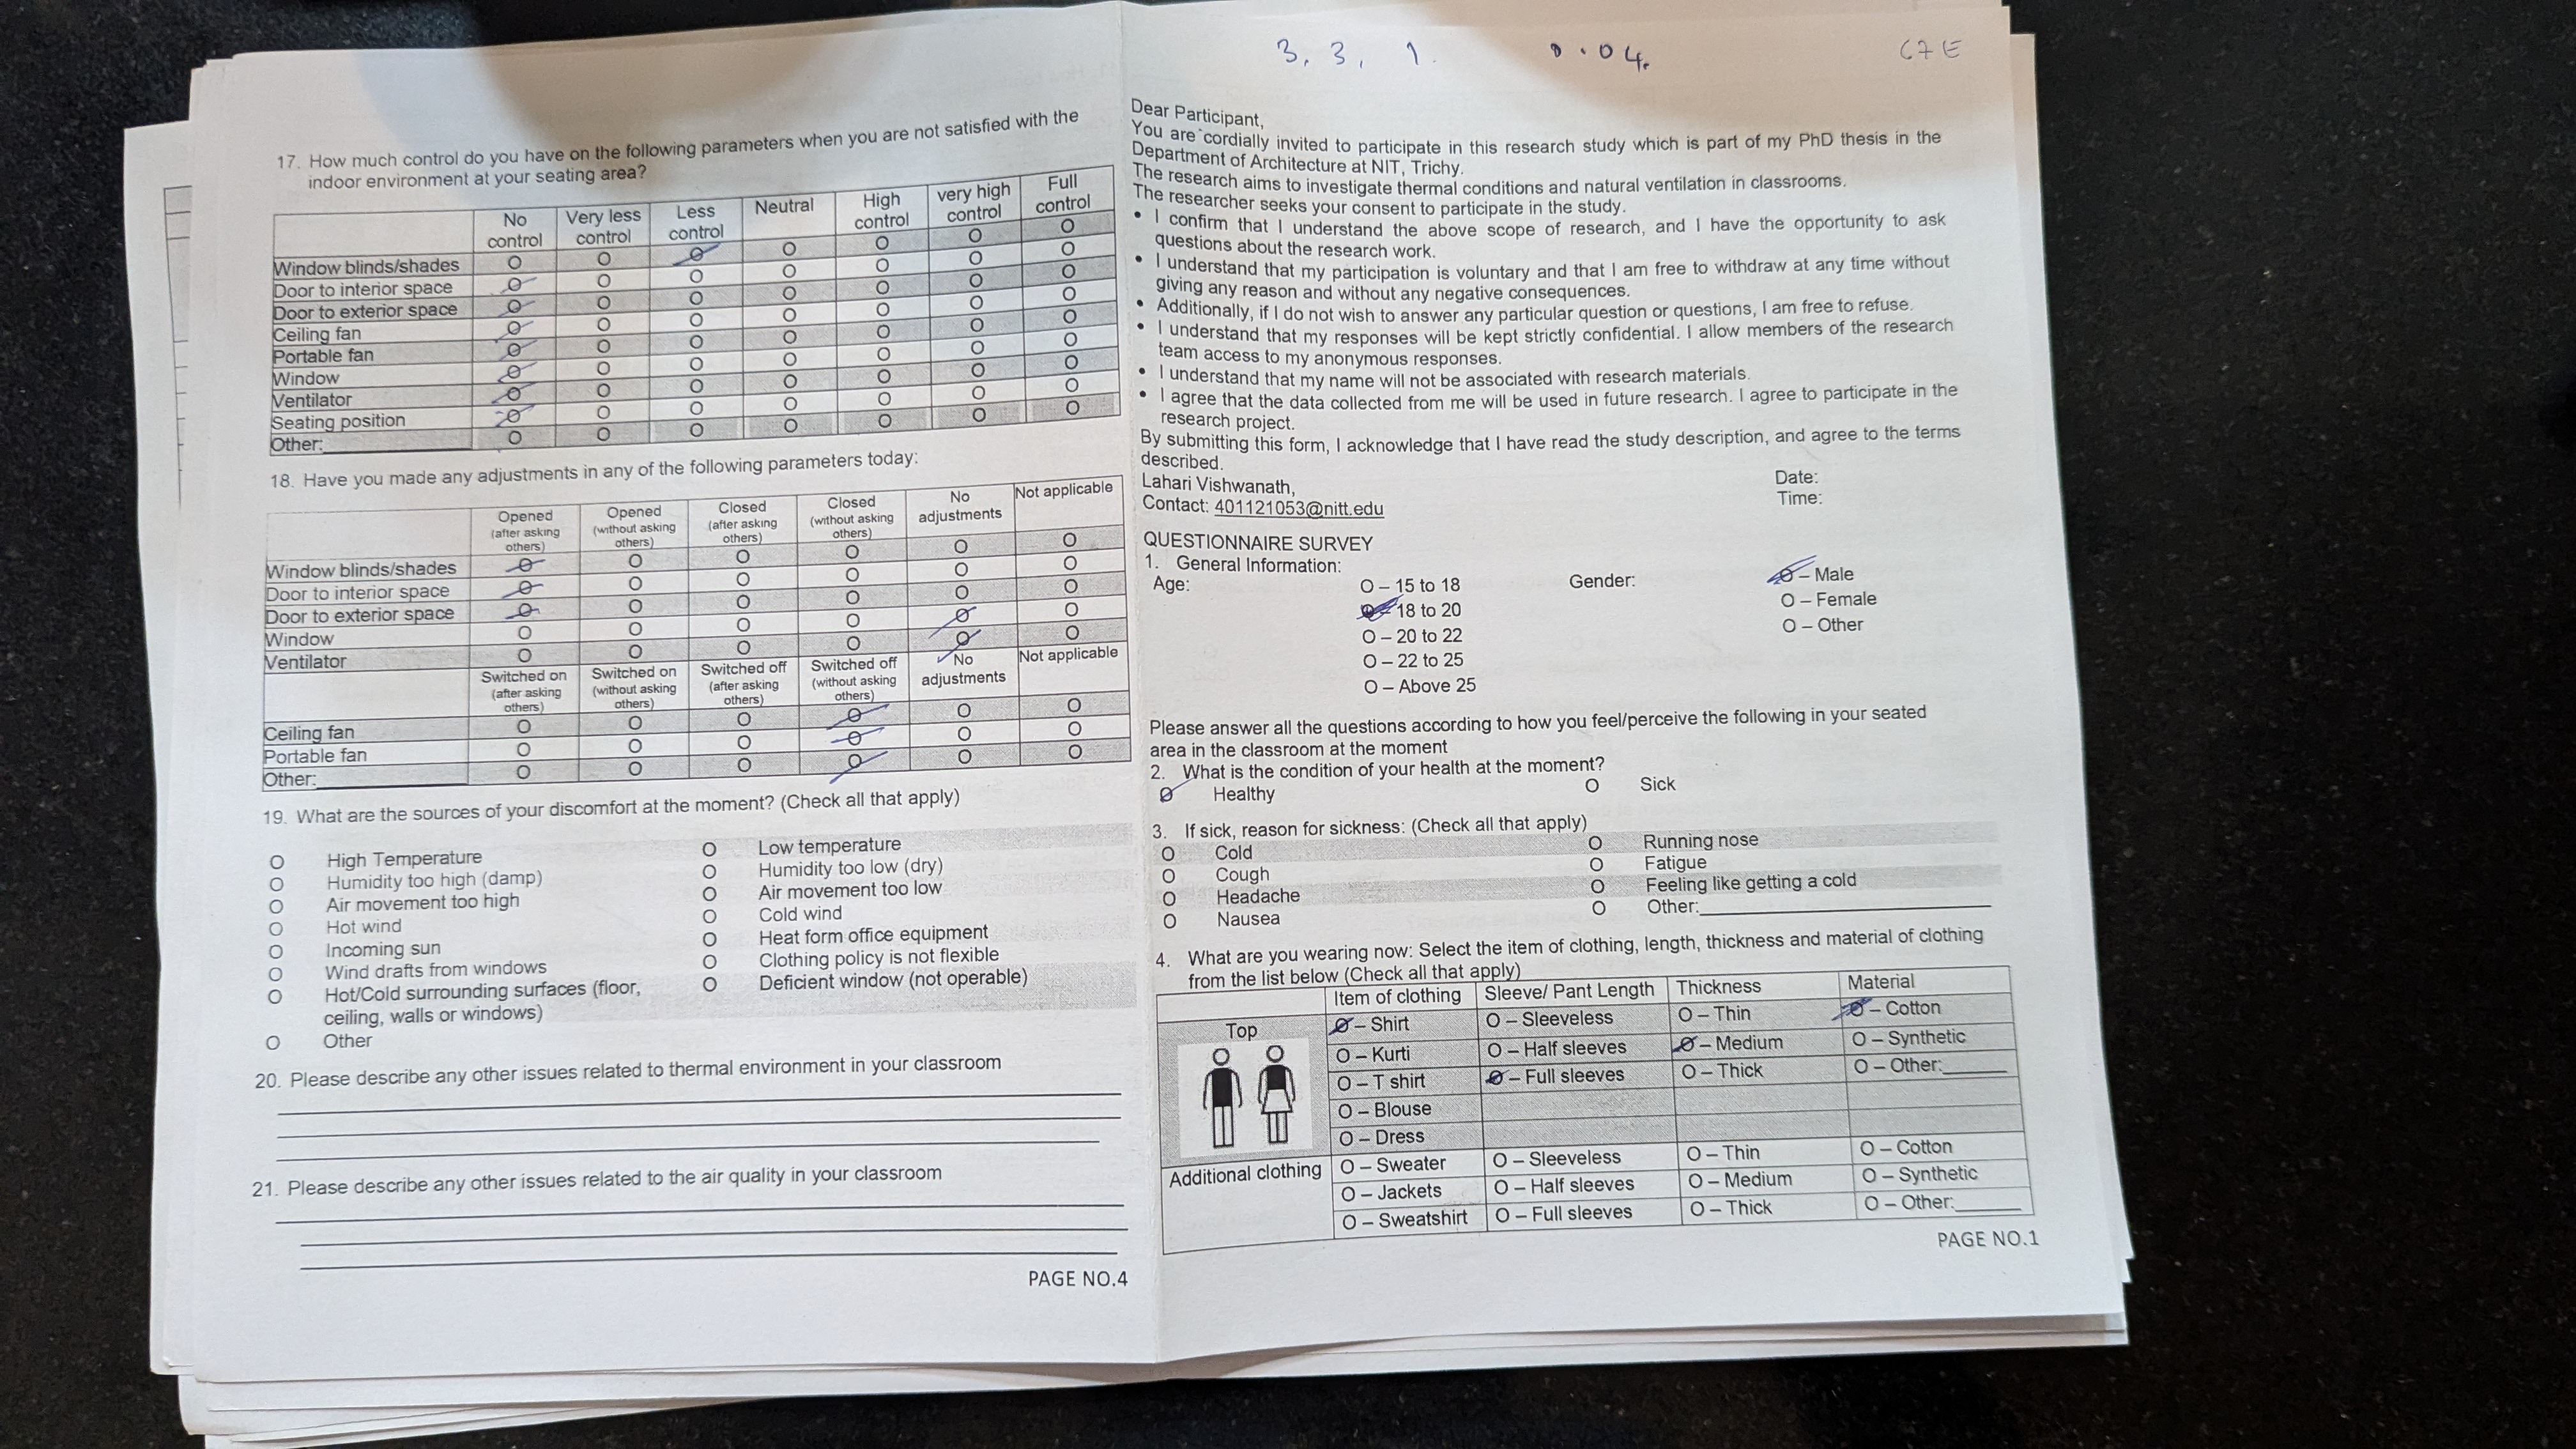 17. How much control do you have on the following parameters when you are not satisfied with the
indoor environment at your seating area?
No control Very less control Less control Neutral High control very high control Full control
Window blinds/shades O O O O O O O
Door to interior space O O O O O O O
Door to exterior space O O O O O O O
Ceiling fan O O O O O O O
Portable fan O O O O O O O
Window O O O O O O O
Ventilator O O O O O O O
Seating position O O O O O O O
Other: O O O O O O O
18. Have you made any adjustments in any of the following parameters today:
Opened (after asking others) Opened (without asking others) Closed (after asking others) Closed (without asking others) No adjustments Not applicable
Window blinds/shades O O O O O O
Door to interior space O O O O O O
Door to exterior space O O O O O O
Window O O O O O O
Ventilator O O O O O O
Switched on (after asking others) Switched on (without asking others) Switched off (after asking others) Switched off (without asking others) No adjustments Not applicable
Ceiling fan O O O O O O
Portable fan O O O O O O
Other: O O O O O O
19. What are the sources of your discomfort at the moment? (Check all that apply)
O High Temperature O Low temperature
O Humidity too high (damp) O Humidity too low (dry)
O Air movement too high O Air movement too low
O Hot wind O Cold wind
O Incoming sun O Heat form office equipment
O Wind drafts from windows O Clothing policy is not flexible
O Hot/Cold surrounding surfaces (floor, O Deficient window (not operable)
ceiling, walls or windows)
O Other
20. Please describe any other issues related to thermal environment in your classroom
21. Please describe any other issues related to the air quality in your classroom
PAGE NO.4
3, 3, 1. 0.04. C7E
Dear Participant,
You are cordially invited to participate in this research study which is part of my PhD thesis in the
Department of Architecture at NIT, Trichy.
The research aims to investigate thermal conditions and natural ventilation in classrooms.
The researcher seeks your consent to participate in the study.
• I confirm that I understand the above scope of research, and I have the opportunity to ask
questions about the research work.
• I understand that my participation is voluntary and that I am free to withdraw at any time without
giving any reason and without any negative consequences.
• Additionally, if I do not wish to answer any particular question or questions, I am free to refuse.
• I understand that my responses will be kept strictly confidential. I allow members of the research
team access to my anonymous responses.
• I understand that my name will not be associated with research materials.
• I agree that the data collected from me will be used in future research. I agree to participate in the
research project.
By submitting this form, I acknowledge that I have read the study description, and agree to the terms
described.
Lahari Vishwanath, Date:
Contact: 401121053@nitt.edu Time:
QUESTIONNAIRE SURVEY
1. General Information:
Age: O – 15 to 18 Gender: O – Male
O – 18 to 20 O – Female
O – 20 to 22 O – Other
O – 22 to 25
O – Above 25
Please answer all the questions according to how you feel/perceive the following in your seated
area in the classroom at the moment
2. What is the condition of your health at the moment?
O Healthy O Sick
3. If sick, reason for sickness: (Check all that apply)
O Cold O Running nose
O Cough O Fatigue
O Headache O Feeling like getting a cold
O Nausea O Other:
4. What are you wearing now: Select the item of clothing, length, thickness and material of clothing
from the list below (Check all that apply)
Item of clothing Sleeve/ Pant Length Thickness Material
Top O – Shirt O – Sleeveless O – Thin O – Cotton
O – Kurti O – Half sleeves O – Medium O – Synthetic
O – T shirt O – Full sleeves O – Thick O – Other:
O – Blouse
O – Dress
Additional clothing O – Sweater O – Sleeveless O – Thin O – Cotton
O – Jackets O – Half sleeves O – Medium O – Synthetic
O – Sweatshirt O – Full sleeves O – Thick O – Other:
PAGE NO.1